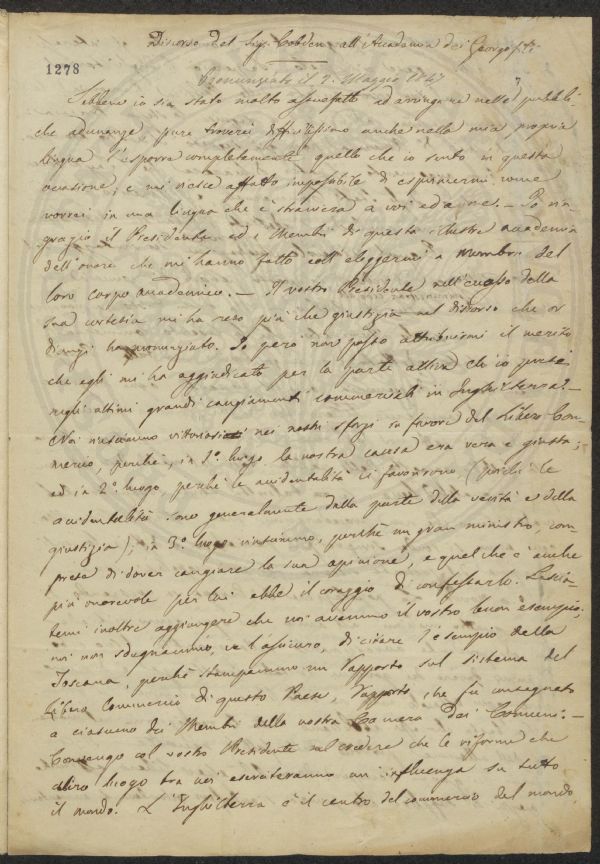 Discorso del Sig. Cobden all'Accademia dei Georgofili
1278
Pronunziato il 2. Maggio 1847
Sebbene io sia stato molto assuefatto ad arringare nelle pubbli-
che adunanze, pure troverei difficilissimo anche nella mia propria
lingua l'esporre completamente quello che io sento in questa
occasione, e mi riesce affatto impossibile di esprimermi come
vorrei in una lingua che è straniera a voi ed a me. — Io rin-
grazio il Presidente ed i Membri di questa illustre accademia
dell'onore che mi hanno fatto coll'eleggermi a membro del
loro corpo accademico. — Il vostro Presidente nell'eccesso della
sua cortesia mi ha reso più che giustizia nel discorso che or
dianzi ha pronunziato. Io però non posso attribuirmi il merito
che egli mi ha aggiudicato per la parte attiva ch'io presi
negli ultimi grandi cangiamenti commerciali in Inghilterra. —
Noi riuscimmo vittoriosi nei nostri sforzi in favore del Libero Com-
mercio, perchè, in 1º. luogo la nostra causa era vera e giusta;
ed in 2º. luogo perchè le accidentalità ci favorirono (poichè le
accidentalità sono generalmente dalla parte della verità e della
giustizia); in 3º. luogo riuscimmo, perchè un gran ministro, com-
prese di dover cangiare la sua opinione, e quel che è anche
più onorevole per lui ebbe il coraggio di confessarlo. Lascia-
temi inoltre aggiungere che noi avemmo il vostro buon esempio,
noi non sdegnammo, ve l'assicuro, di citare l'esempio della
Toscana, perchè stampammo un Rapporto sul sistema del
Libero Commercio di questo Paese, Rapporto, che fu consegnato
a ciascuno dei Membri della nostra Camera Dei Comuni. —
Convengo col vostro Presidente nel credere che le riforme che
ebbero luogo tra noi eserciteranno un influenza su tutto
il mondo. L'Inghilterra è il centro del commercio del mondo